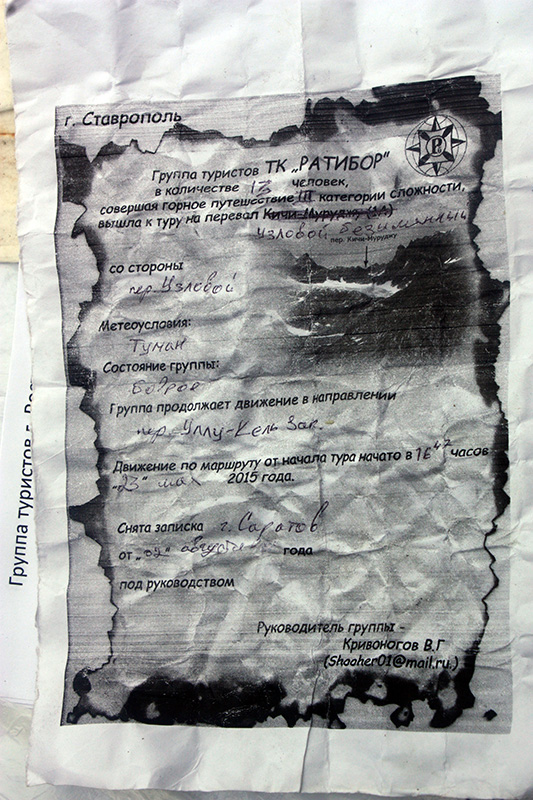 г. Ставрополь
Группа туристов ТК „РАТИБОР"
в количестве 13 человек,
совершая горное путешествие III категории сложности,
вышла к туру на перевал Кичи-Муруджу
Узловой Безымянный
пер. Кичи-Муруджу
со стороны
пер. Узловой
Метеоусловия:
Туман
Состояние группы:
Бодрое
Группа продолжает движение в направлении
пер. Уллу-Кель Зап.
Движение по маршруту от начала тура начато в 16 47 часов
„23" мая 2015 года.
Снята записка г. Саратов
от „02" августа года
под руководством
Руководитель группы -
Кривоногов В.Г
(Shooher01@mail.ru.)
Группа туристов г.